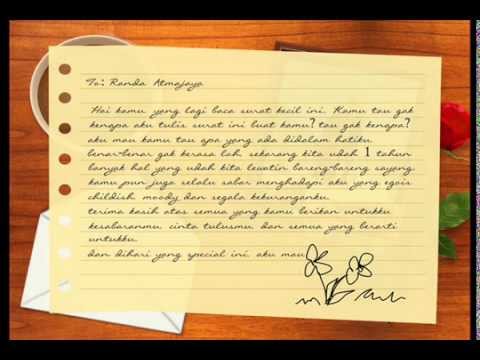 To: Randa Atmajaya
Hai kamu yang lagi baca surat kecil ini. Kamu tau gak
kenapa aku tulis surat ini buat kamu? tau gak kenapa?
aku mau kamu tau apa yang ada didalam hatiku.
benar-benar gak kerasa loh, sekarang kita udah 1 tahun
banyak hal yang udah kita lewatin bareng-bareng sayang.
kamu pun juga selalu sabar menghadapi aku yang egois
childish, moody dan segala kekuranganku.
terima kasih atas semua yang kamu berikan untukku
kesabaranmu, cinta tulusmu, dan semua yang berarti
untukku.
dan dihari yang special ini, aku mau